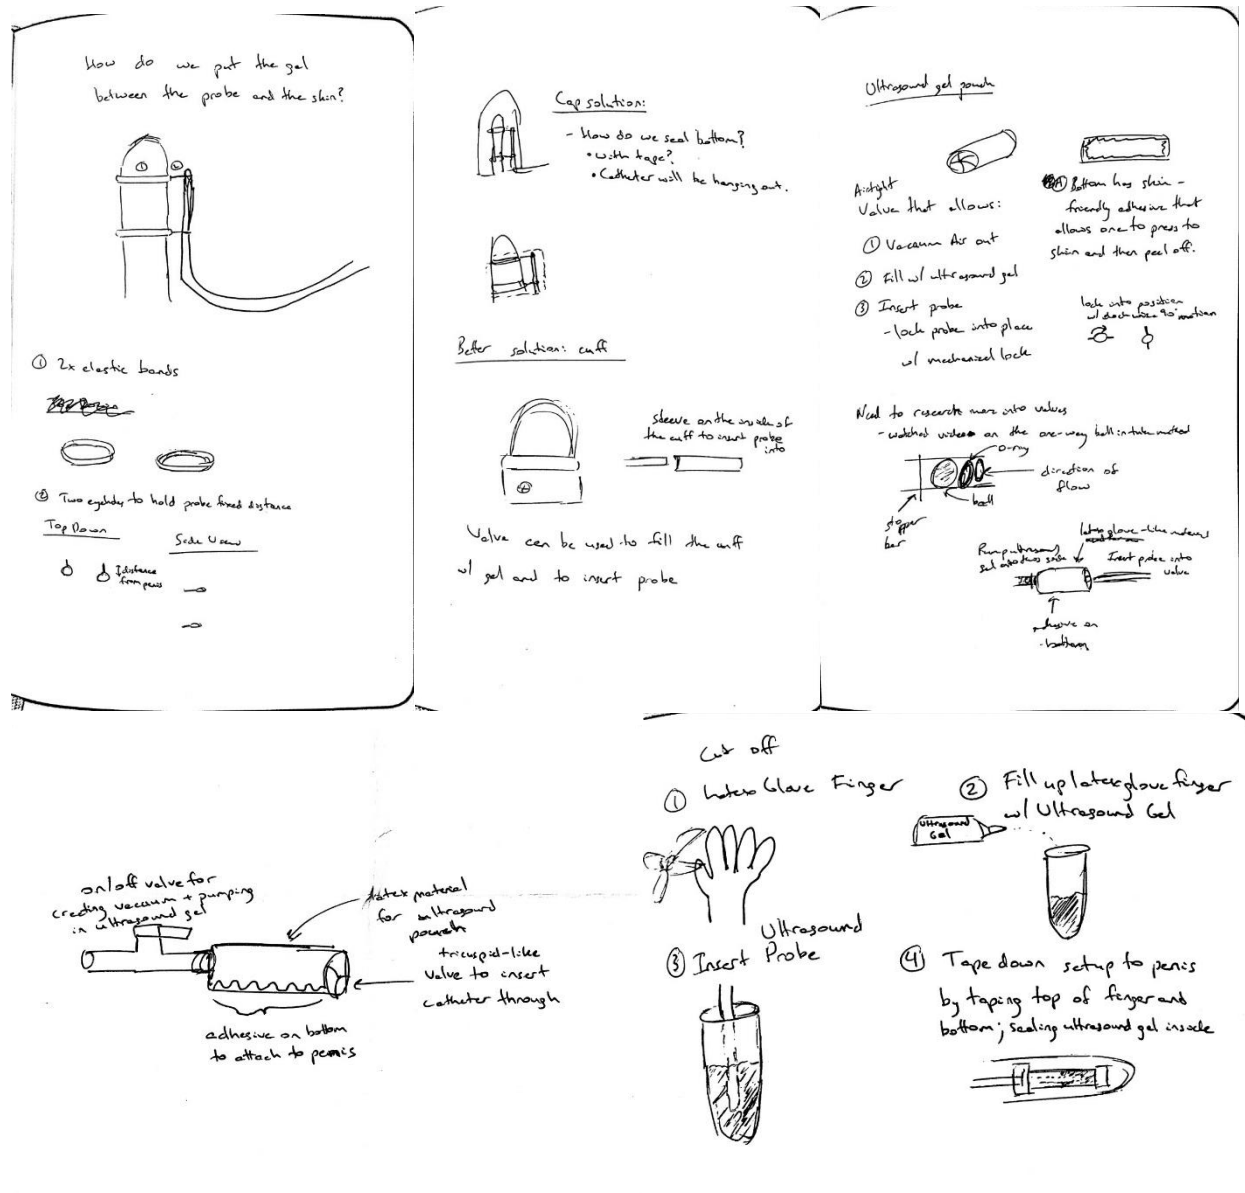 How do we put the gel
between the probe and the skin?
① 2x elastic bands
② Two eyelets to hold probe fixed distance
Top Down
Side View
distance
from penis
Cap solution:
- How do we seal bottom?
• with tape?
• Catheter will be hanging out.
Better solution: cuff
sleeve on the inside of
the cuff to insert probe
into
Valve can be used to fill the cuff
w/ gel and to insert probe
Ultrasound gel pouch
Airtight
Valve that allows:
① Vacuum Air out
② Fill w/ ultrasound gel
③ Insert probe
- lock probe into place
w/ mechanical lock
A) Bottom has skin-
friendly adhesive that
allows one to press to
skin and then peel off.
lock into position
w/ clockwise 90° motion
Need to research more into valves
- watched video on the one-way ball in tube method
O-ring
direction of
flow
ball
stopper
bar
latex glove-like material
Pump ultrasound
gel into this side
Insert probe into
valve
adhesive on
bottom
on/off valve for
creating vacuum + pumping
in ultrasound gel
latex material
for ultrasound
pouch
tricuspid-like
valve to insert
catheter through
adhesive on bottom
to attach to penis
Cut off
① Latex Glove Finger
② Fill up latex glove finger
w/ Ultrasound Gel
Ultrasound
Gel
③ Insert Ultrasound
Probe
④ Tape down setup to penis
by taping top of finger and
bottom; sealing ultrasound gel inside